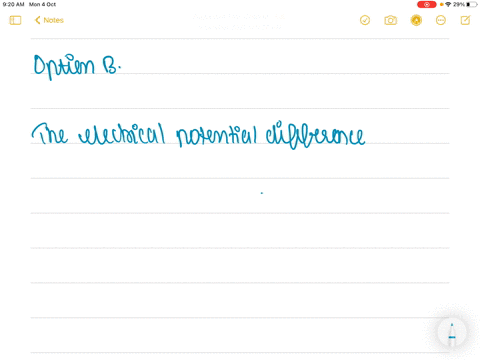 9:20 AM Mon 4 Oct
29%
Notes
Option B.
The electrical potential difference